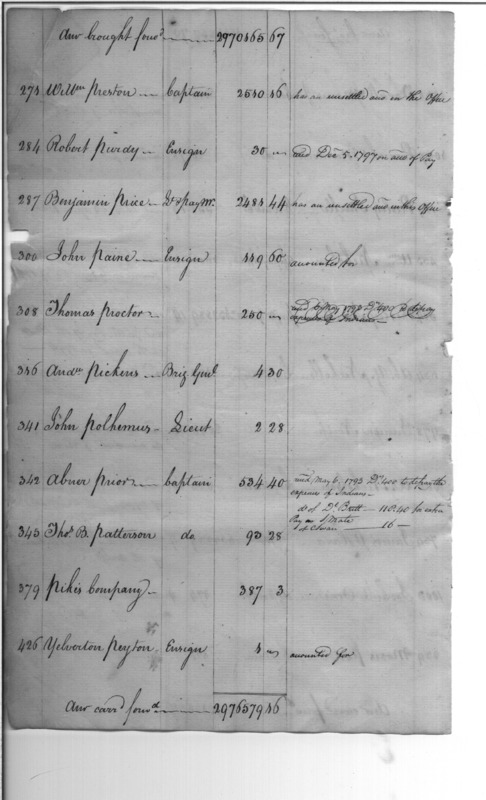 Amt brought forwd 2970465 67
274 Willm Preston Captain 2540 46 has an unsettled acct in the Office
284 Robert Purdy Ensign 30 recd Decr 5. 1797 on acct of Pay
287 Benjamin Price Lt & paymr 2484 44 has an unsettled acct in this Office
300 John Paine Ensign 449 60 accounted for
308 Thomas Proctor 250
336 Andw Pickens Brig Genl 4 30
341 John Polhemus Lieut 2 28
342 Abner Prior Captain 534 40 recd, May 6, 1793 Drs 400 to defray the
expences of Indians
do of Dr Britt 118.40 for extra
Pay as
16
343 Thos B. Patterson do 93 28
379 Pikes Company 387 3
426 Yelverton Peyton Ensign accounted for
Amt carrd forwd 2976579 46